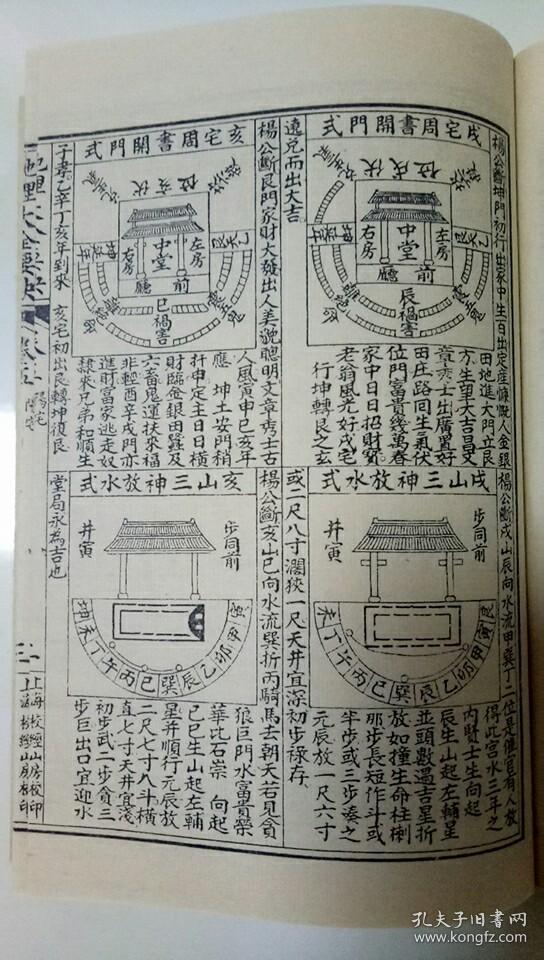 戌宅周書開門式
中堂
左房
右房
前廳
辰禍害
楊公斷坤門初行出家中生百
田地進大門立艮
方生里大吉昌文
章秀士出廣置好
田庄路同生氣伏
位門富貴幾萬春
家中日日招財寶
老翁風光好戌宅
行坤轉艮之玄
遶兑而出大吉
亥宅周書開門式
伏亥位
中堂
左房
右房
前廳
巳禍害
楊公斷艮門家財大發出人美貌聰明文章秀士古
人風寅申巳亥年
應坤土安門稍
扦申定主日日橫
財臨金銀田蠶及
六畜鬼運扶來福
非輕酉辛戌門亦
進財富家逃走奴
隸來兄弟和順生
子壽乙辛丁亥年到來
亥宅初出艮轉坤復艮
戌山三神放水式
步同前
井寅
楊公斷戌山辰向水流甲巽丁二位是催官有人放
得此宮水三年之
内財士生向起
辰生山起左輔星
並頭數過吉星折
放如撞生命柱榭
那步長短作斗或
半步或三步湊之
元辰放一尺六寸
或二尺八寸濶狹一尺天井宜深
初步祿存
亥山三神放水式
步同前
井寅
坤未丁午丙巳巽辰乙卯甲
楊公斷亥山巳向水流巽折丙騎馬去朝天若見貪
狼巨門水富貴榮
華比石崇向起
巳巳生山起左輔
星井順行元辰放
二尺七寸八斗橫
直七寸天井宜淺
初步武二步貪三
步巨出口宜迎水
堂局永為吉也
地理大全要訣
上海校經山房校印
孔夫子旧书网
www.kongfz.com